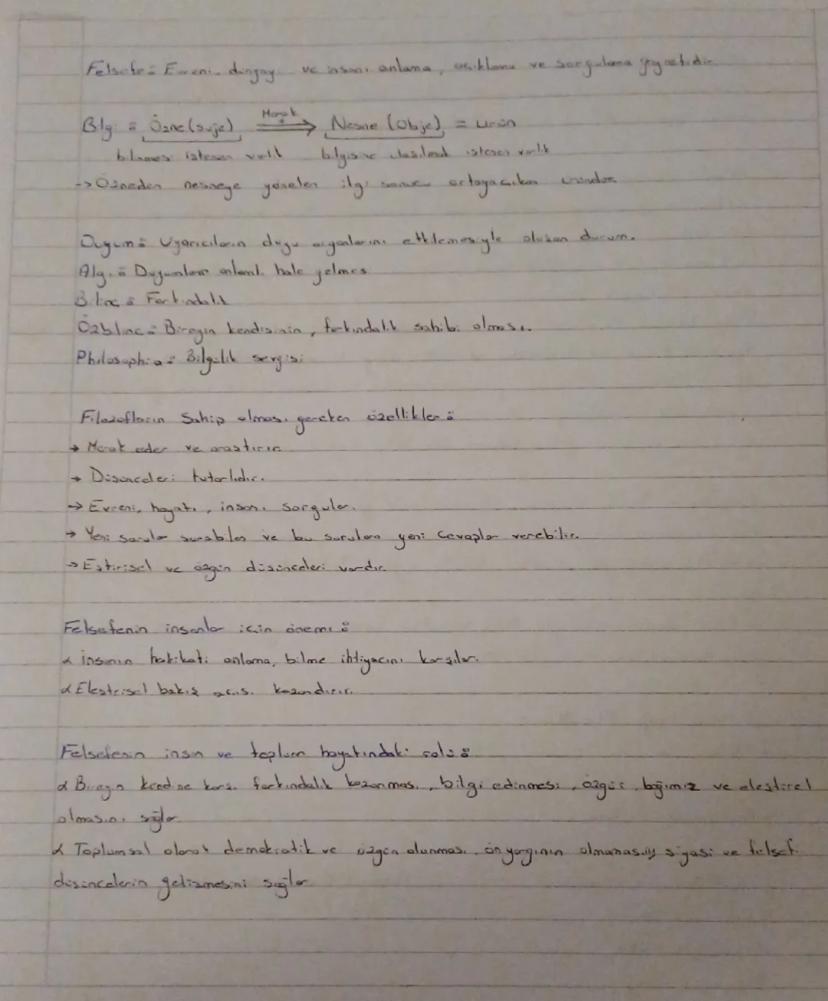 Felsefe: Evreni, dünyayı ve insanı anlama, açıklama ve sorgulama
Bilgi: Özne (suje) Merak ⟹ Nesne (Obje) = ürün
bilmek isteyen varlık bilgisine isteyen varlık
-> Özneden nesneye yönelen ilgi sonucu ortaya çıkan üründür.
Duyum: Uyarıcıların duyu organlarını etkilemesiyle oluşan durum.
Algı: Duyumların anlamlı hale gelmesi
Bilinç: Farkındalık
Özbilinç: Bireyin kendisinin, farkındalık sahibi olması.
Philosophia: Bilgelik sevgisi
Filozofların Sahip olması gereken özellikler:
→ Merak eder ve araştırır
→ Düşünceleri tutarlıdır.
→ Evreni, hayatı, insanı sorgular.
→ Yeni sorular sorabilen ve bu sorulara yeni cevaplar verebilir.
→ Eştirisel ve özgün düşünceleri vardır.
Felsefenin insanlar için önemi:
α İnsanın hakikati anlama, bilme ihtiyacını karşılar.
α Eleştrisel bakış açısı kazandırır.
Felsefenin insan ve toplum hayatındaki rolü:
α Bireyin kendine karşı farkındalık kazanması, bilgi edinmesi, özgür, bağımız ve eleştirel
olmasını sağlar
α Toplumsal olarak demokratik ve özgün olunması, önyargının siyasi ve felsefi
düşüncelerin gelişmesini sağlar